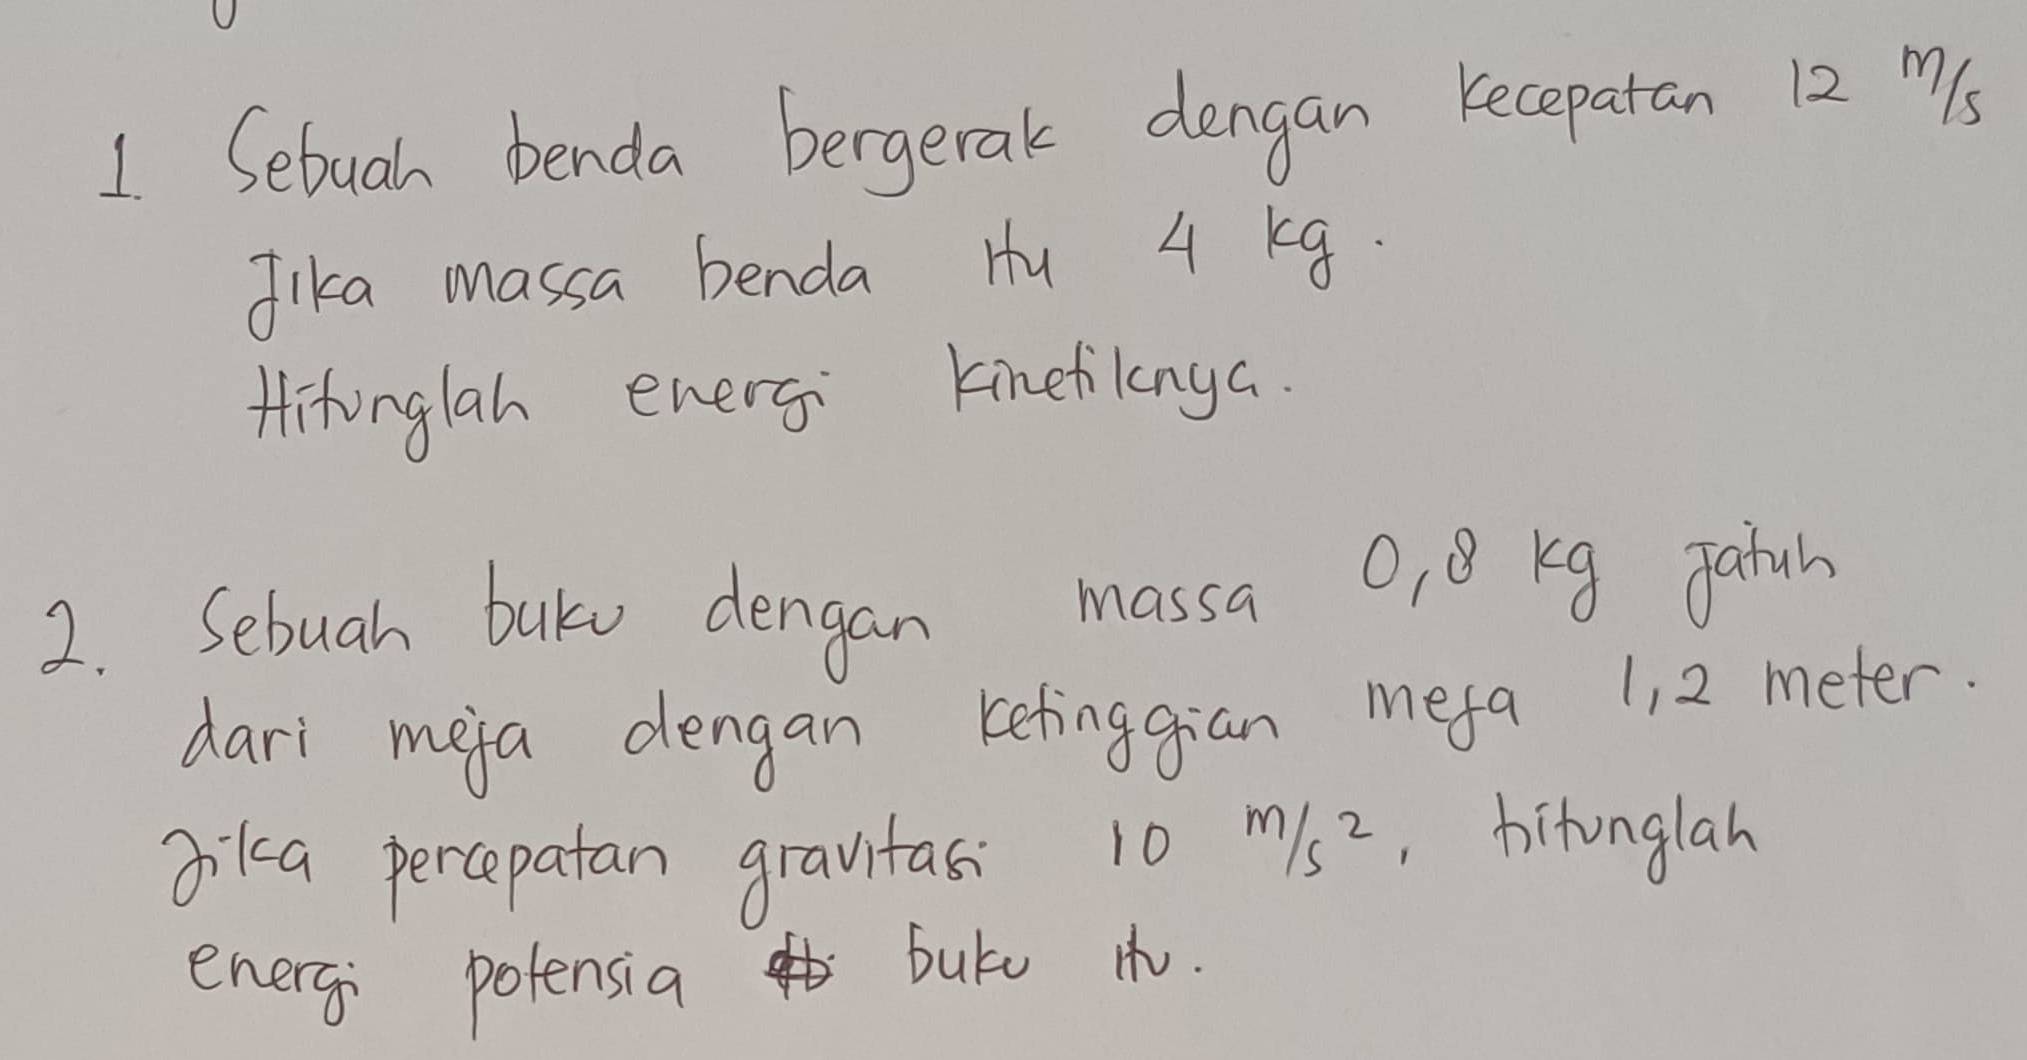 1. Sebuah benda bergerak dengan kecepatan 12 m/s
Jika massa benda itu 4 kg.
Hitunglah energi kinetiknya.
2. Sebuah buku dengan massa 0,8 kg jatuh
dari meja dengan ketinggian meja 1,2 meter.
Jika percepatan gravitasi 10 m/s², hitunglah
energi potensia buku itu.